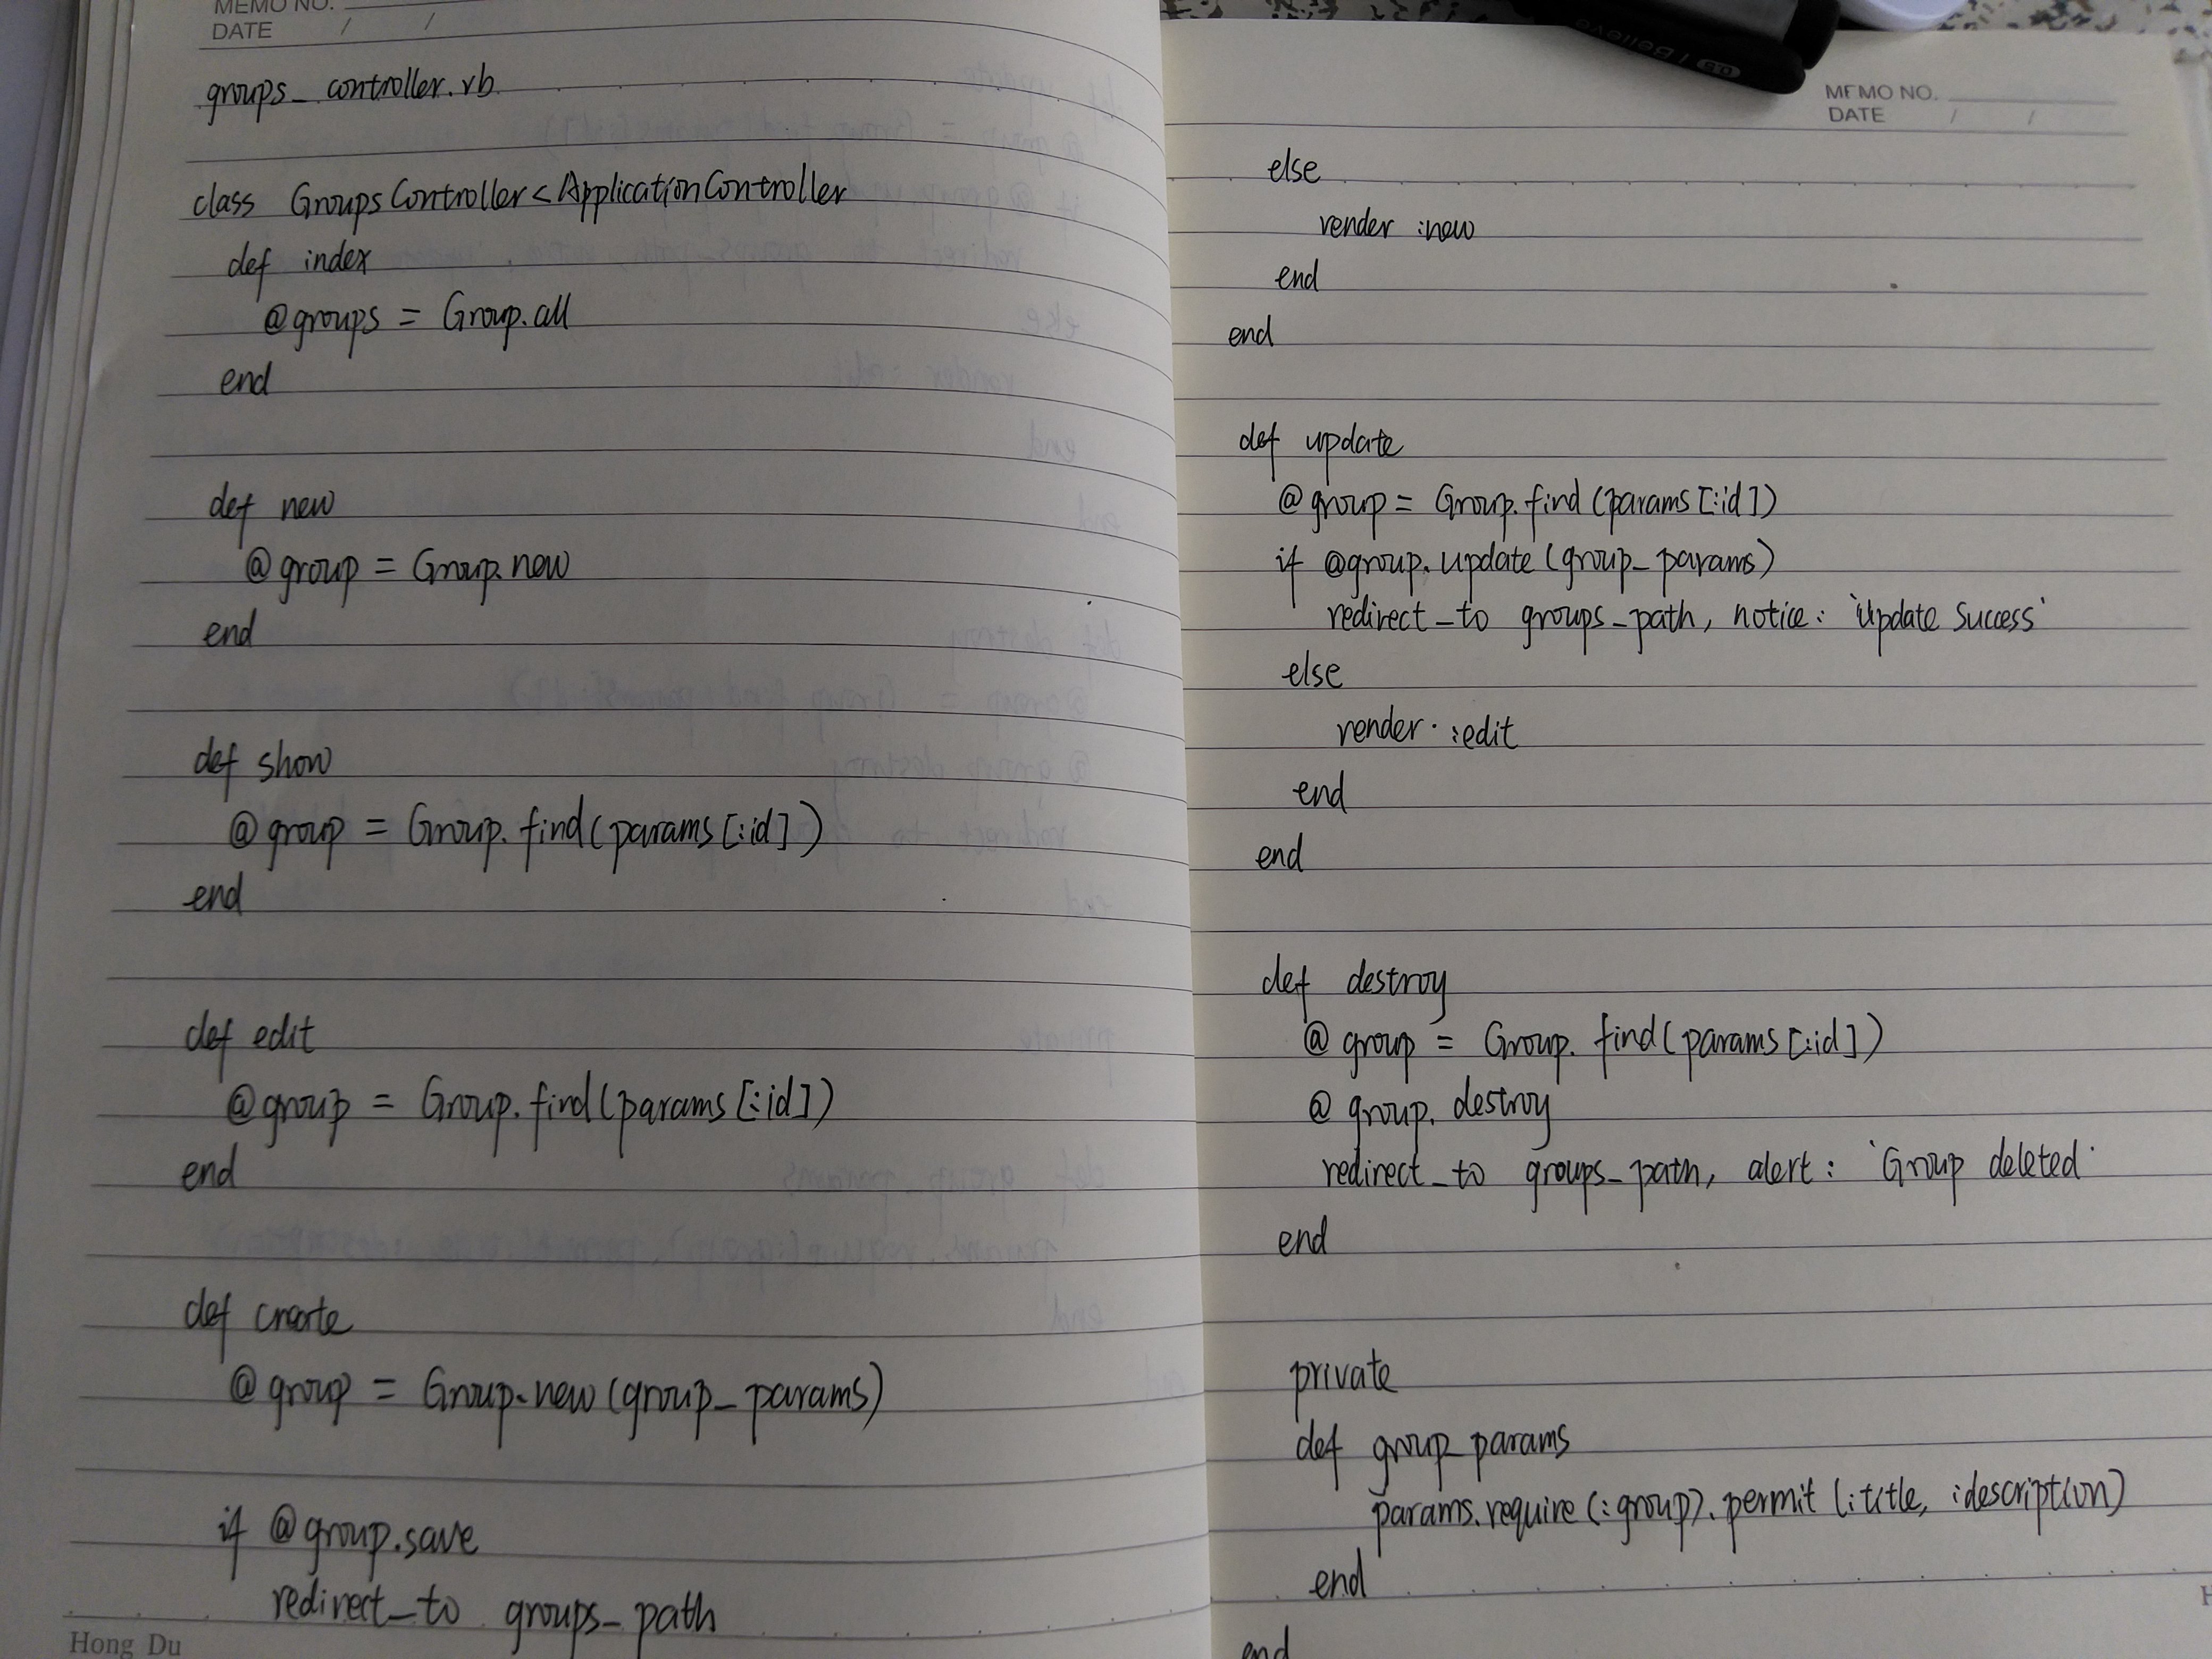 MEMO NO.
DATE / /
groups_controller.rb
class GroupsController < ApplicationController
def index
@groups = Group.all
end
def new
@group = Group.new
end
def show
@group = Group.find(params[:id])
end
def edit
@group = Group.find(params[:id])
end
def create
@group = Group.new(group_params)
if @group.save
redirect_to groups_path
Hong Du
I Believe 0.5
MEMO NO.
DATE / /
else
render :new
end
end
def update
@group = Group.find(params[:id])
if @group.update(group_params)
redirect_to groups_path, notice: 'Update Success'
else
render :edit
end
end
def destroy
@group = Group.find(params[:id])
@group.destroy
redirect_to groups_path, alert: 'Group deleted'
end
private
def group_params
params.require(:group).permit(:title, :description)
end
end
H